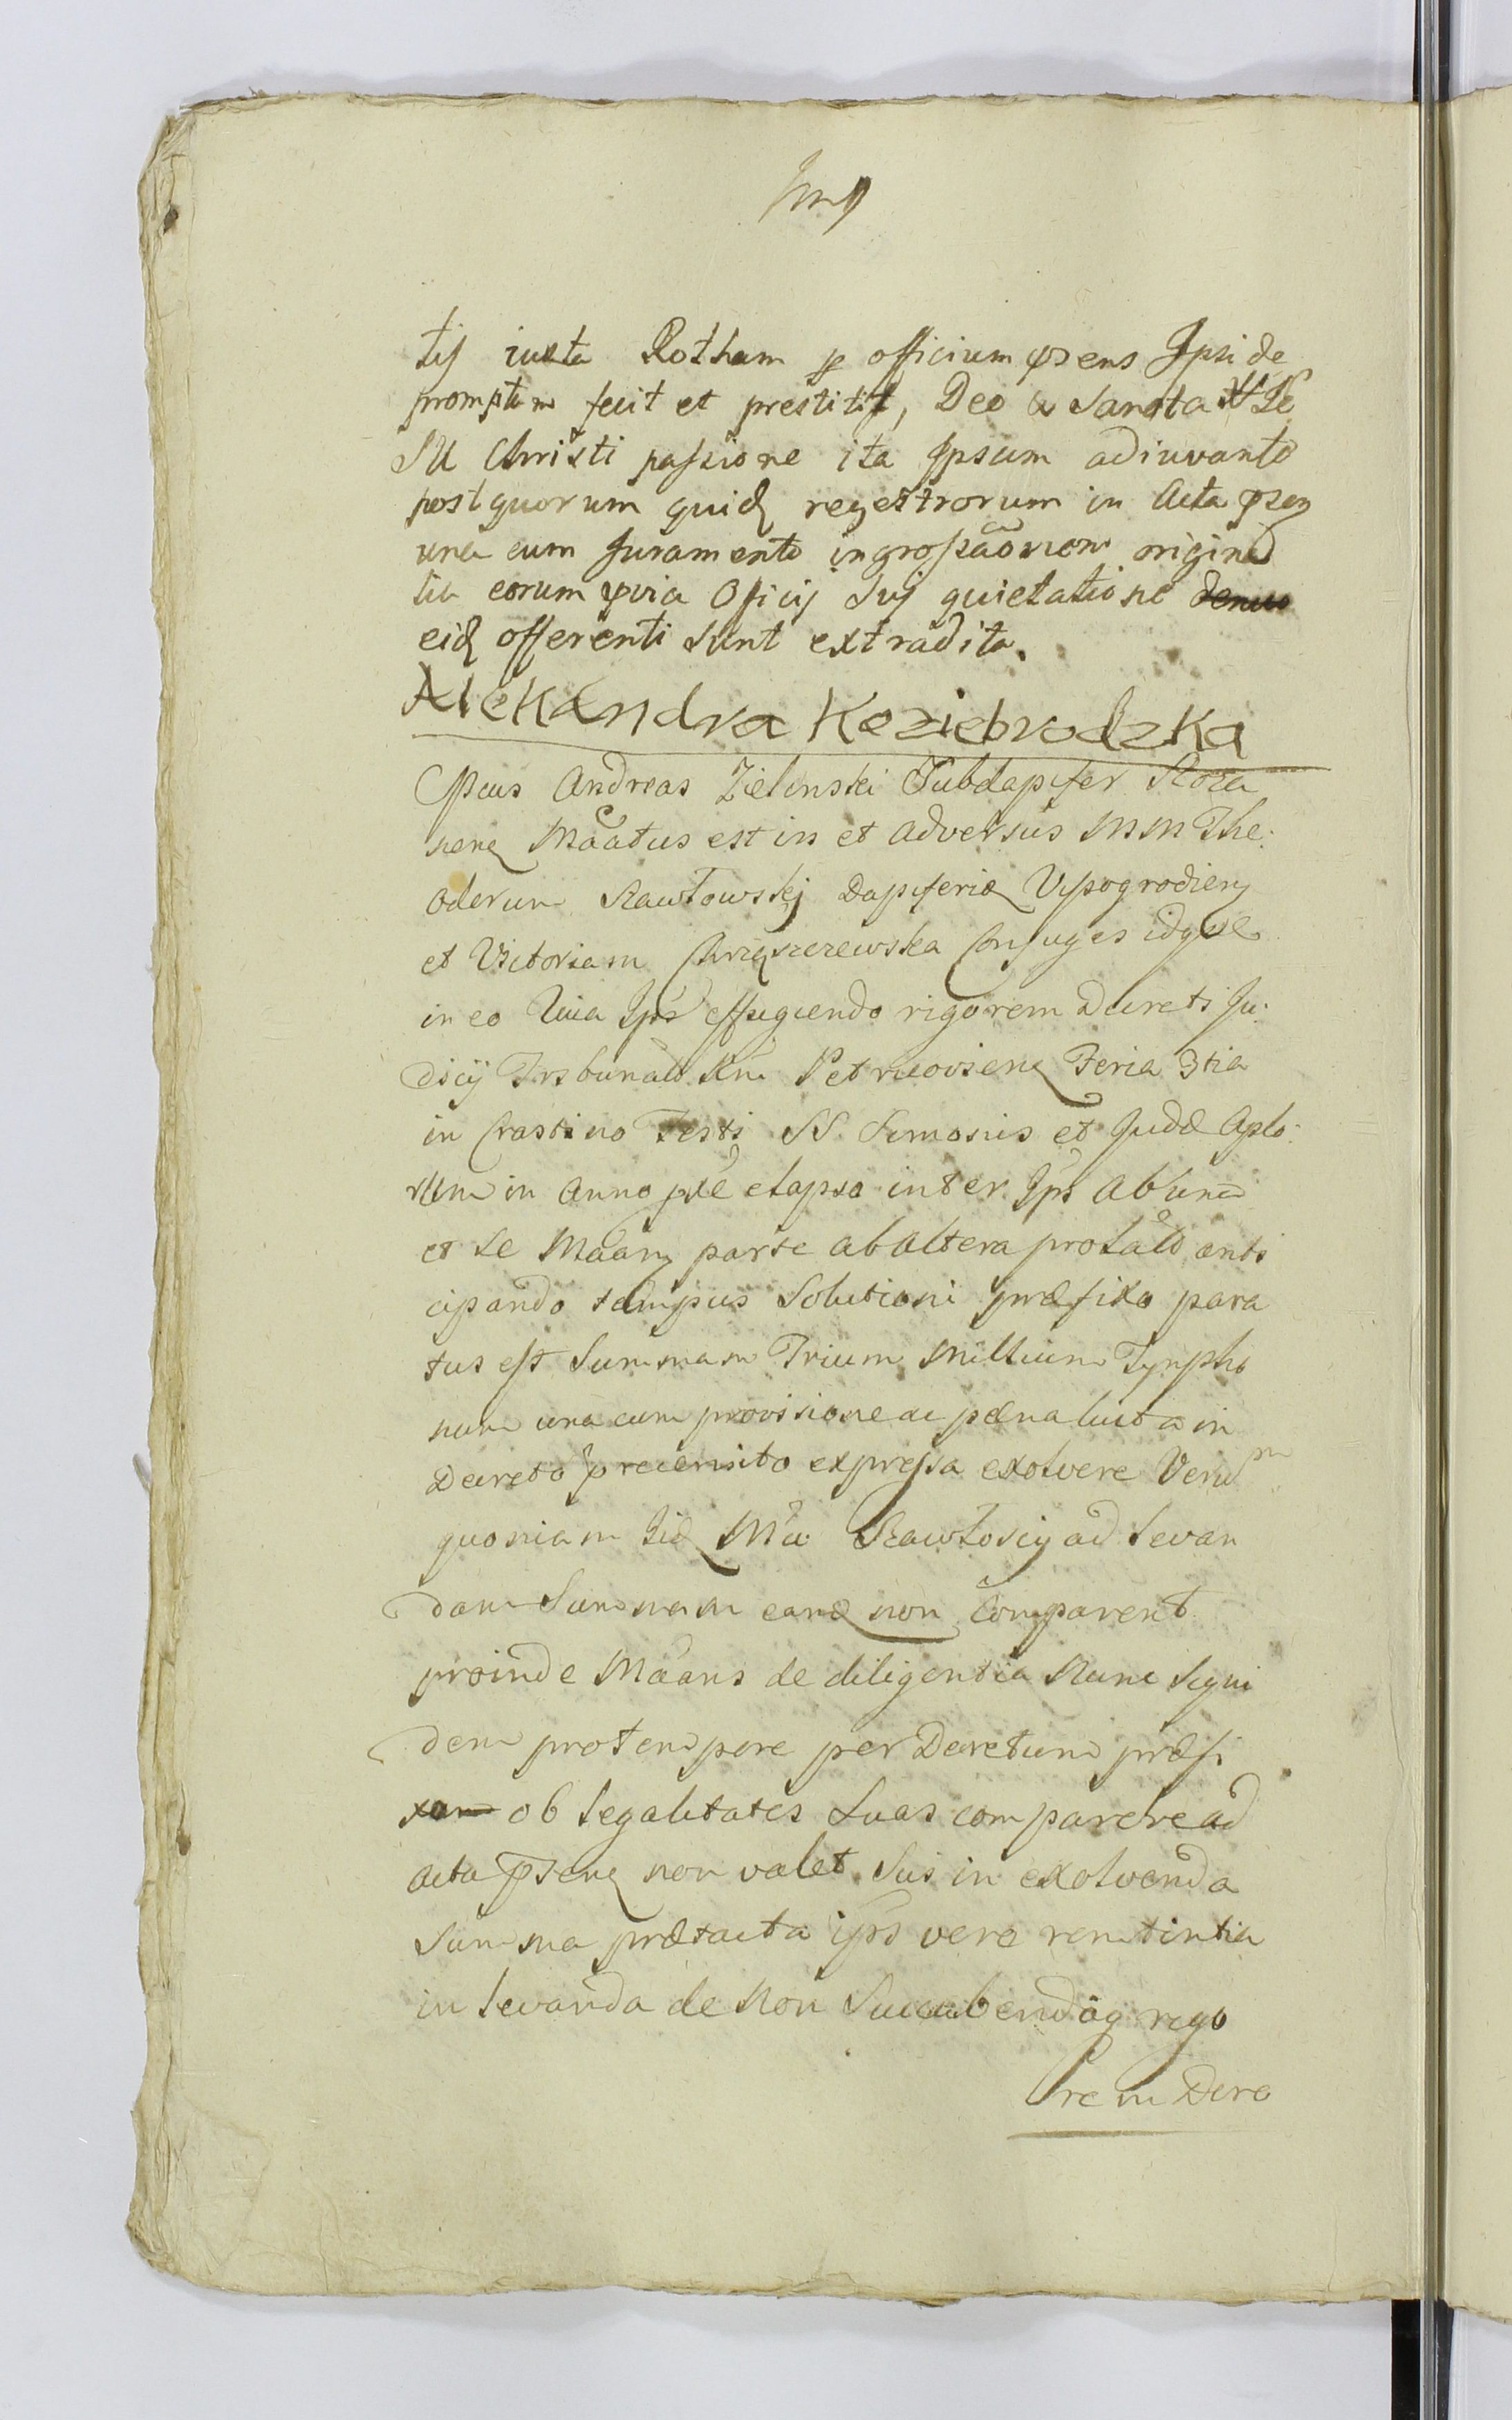 tij iuxta Rotham p officium psens Ipsi de
promptam fecit et prestitit, Deo & Sancta Je
SU Christi passione ita Ipsum adiuvante
post quorum quid regestrorum in Acta psen
una cum Juramento ingrossãonem origina
lia eorum pvia Officij Suj quietatione
eid offerenti sunt extradita.
Alekandra Koziebrodzka
Andreas Zielinski Subdapifer Roza
nen Mãatus est in et adversus MM The
odorum Rawtowskj Dapiferid Vyszogrodien
et Victoriam Conjuges idque
in eo Quia Ips effugiendo rigorem Decreti Ju
dicij Tribunalis Rni Petricovien Feria 3tia
in Crastino Festi SS Simonis et Judæ Aplo
rum in Anno pxe elapso inter Ips ab una
et se Mãan parte ab altera prolato anti
cipando tempus Solutioni præfixo para
tus est Summam Trium Millium Tympho
num una cum provisione ac pæna luita in
Decreto precensito expressa exolvere Verum
quoniam Iid Mci Rawtoscij ad levan
dam Summam eand non Comparent
proinde Mãans de diligentia Nunc siqui
dem pro tempore per Decretum præfi
xo ob legalitates Suas comparere ad
acta psen non valet Sui in exolvenda
Summa prætacta ips vero renitentia
in levanda de Non Succubendoq rigo
re in Decre